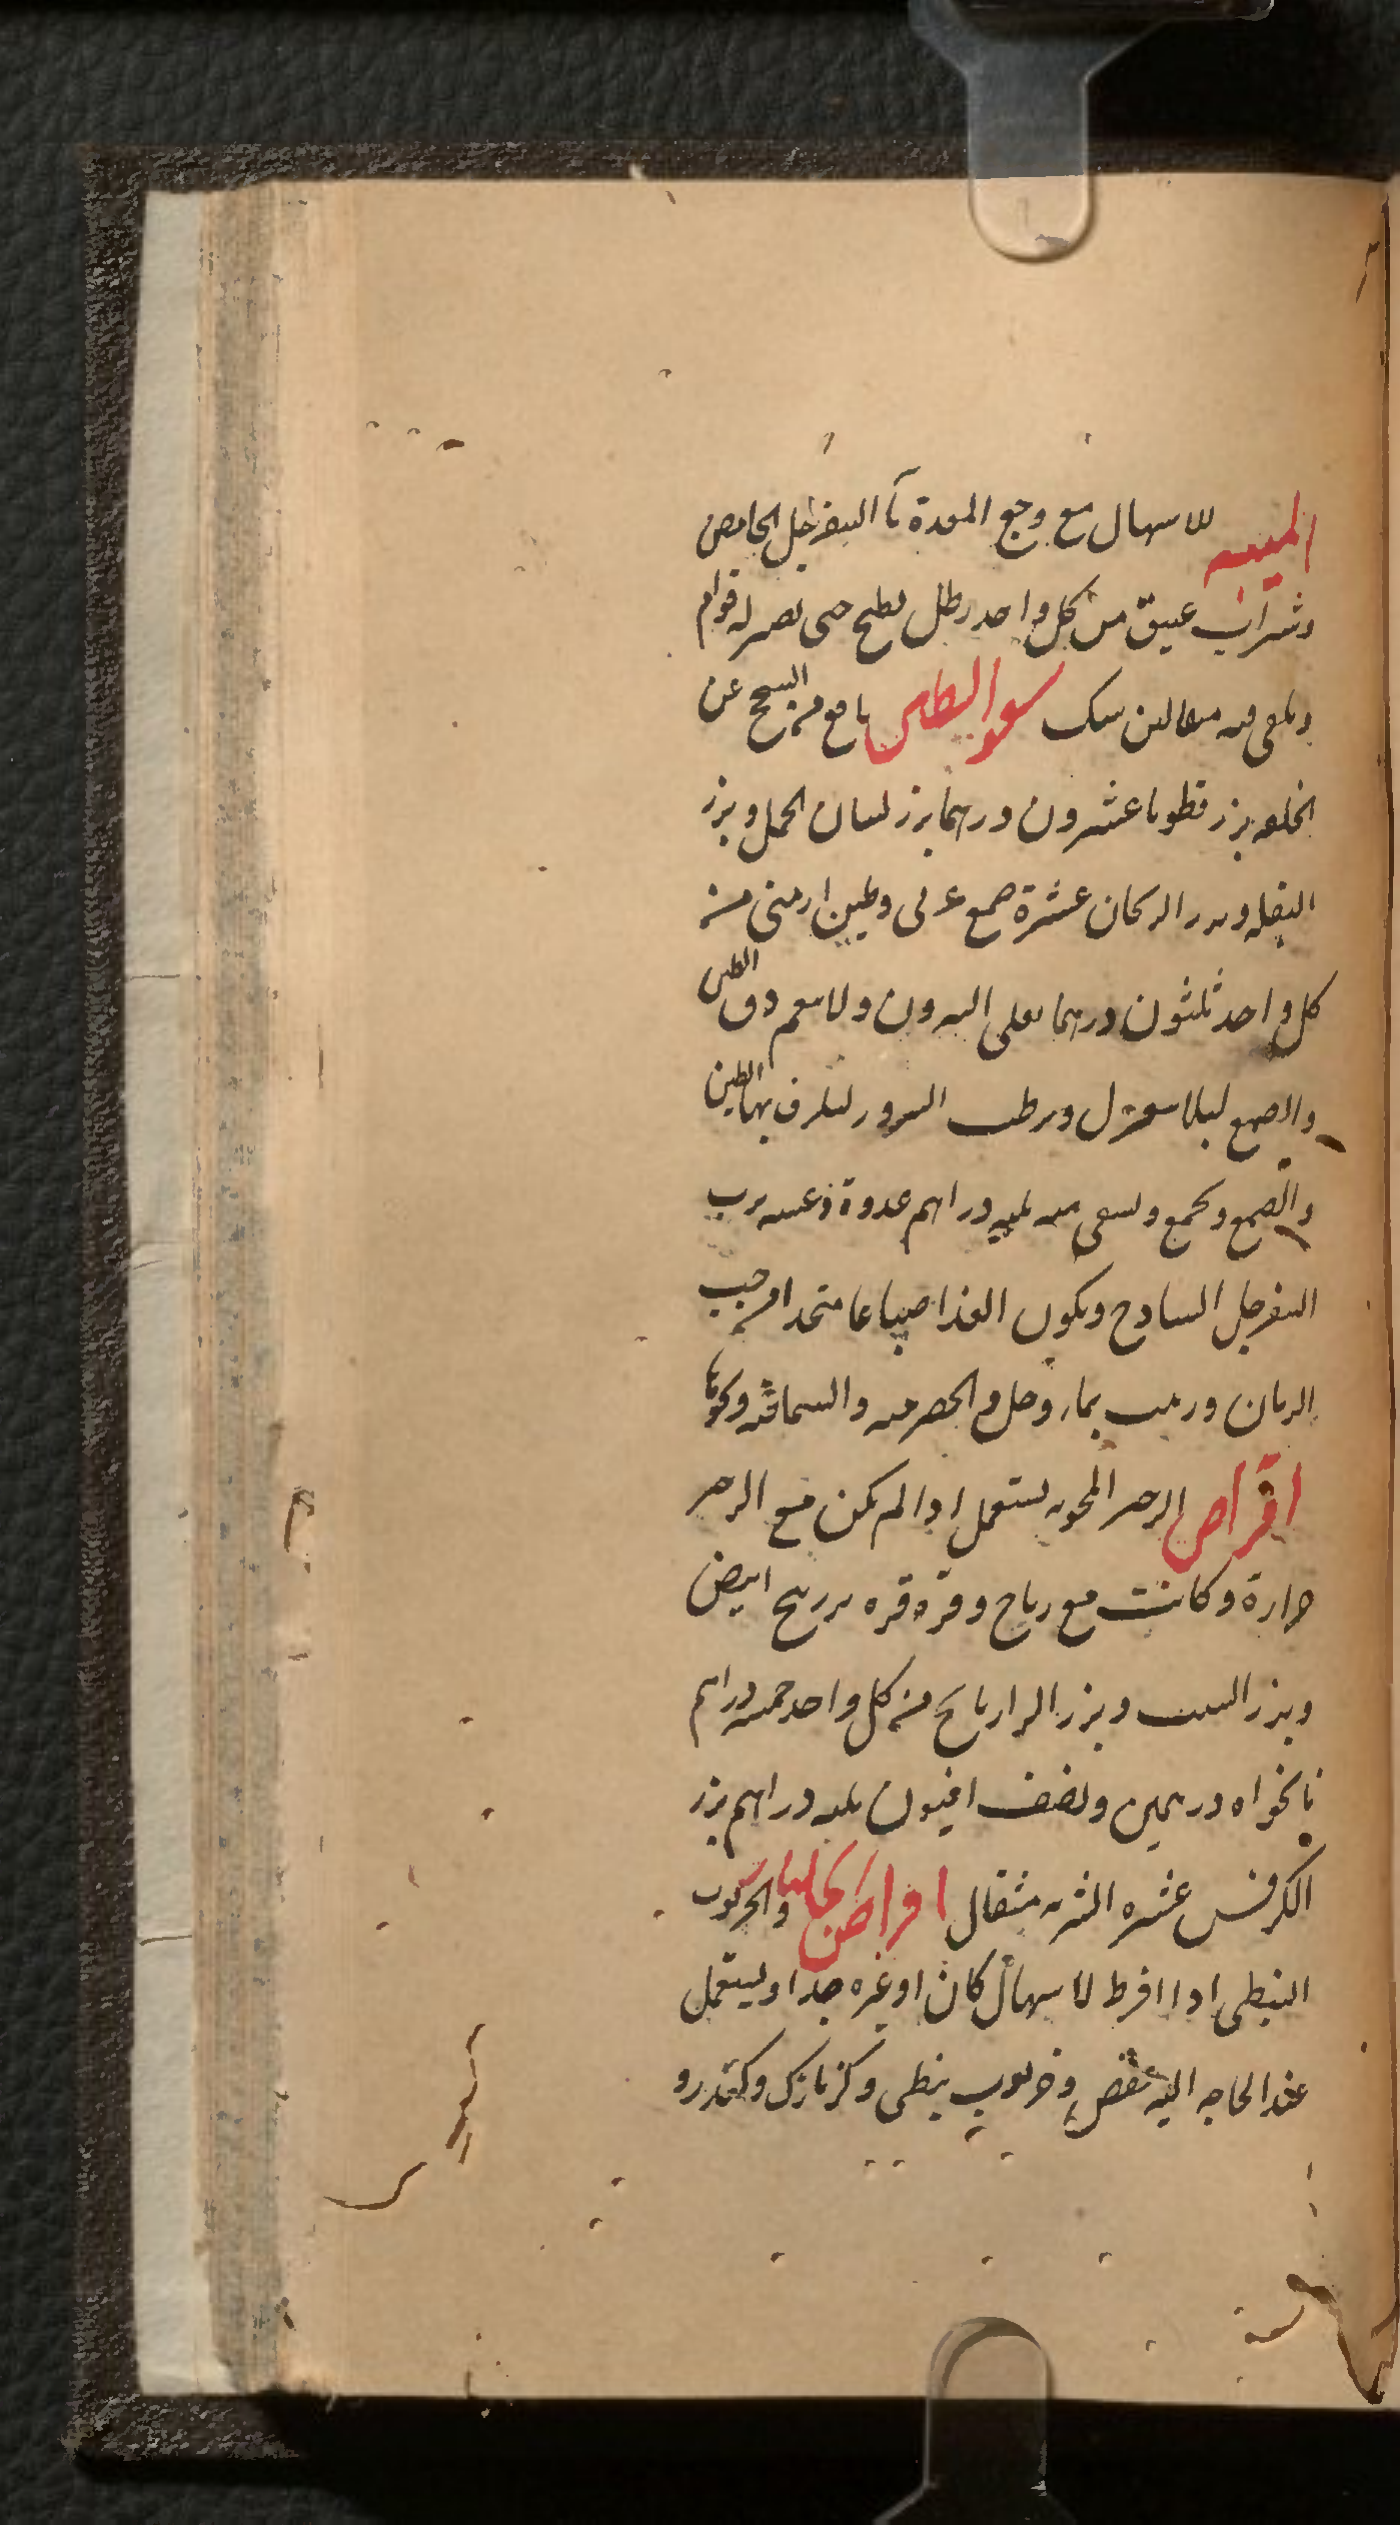 الميبه للاسهال مع وجع المعدة ما السفرجل الحامض
وشراب عتيق من كل واحد رطل يطبخ حتى يصير له قوام
ويلقى فيه مثقالين سك سفوف الطين نافع من السحج عن
الخلفه بزر قطونا عشرون درهما بزر لسان الحمل وبزر
البقله وبزر الريحان عشرة صمغ عربى وطين ارمنى من
كل واحد ثلثون درهما يقلى البزرون ولا ينعم دق الطين
والصمغ ليلا ينعزل ويرطب البزور ليلزق بها الطين
والصمغ ويجمع ويسقى منه ثلثه دراهم غدوة وعشيه برب
السفرجل السادج ويكون الغذا صباغا متخدا من حب
الرمان وزبيب بماء وخل والحصرميه والسماقيه ونحوها
اقراص الزحير المجربه يستعمل ادا لم يكن مع الزحير
حرارة وكانت مع رياح وقرقره بزر بنج ابيض
وبزر الشبت وبزر الرازيانج من كل واحد خمسه دراهم
نانخواه درهمين ونصف افيون ثلثه دراهم بزر
الكرفس عشره الشربه مثقال اقراص الجلنار والخرنوب
النبطى ادا افرط لاسهال كان او غيره جدا ويستعمل
عند الحاجه اليه عفص وخرنوب نبطى وكزمازك وكندر و